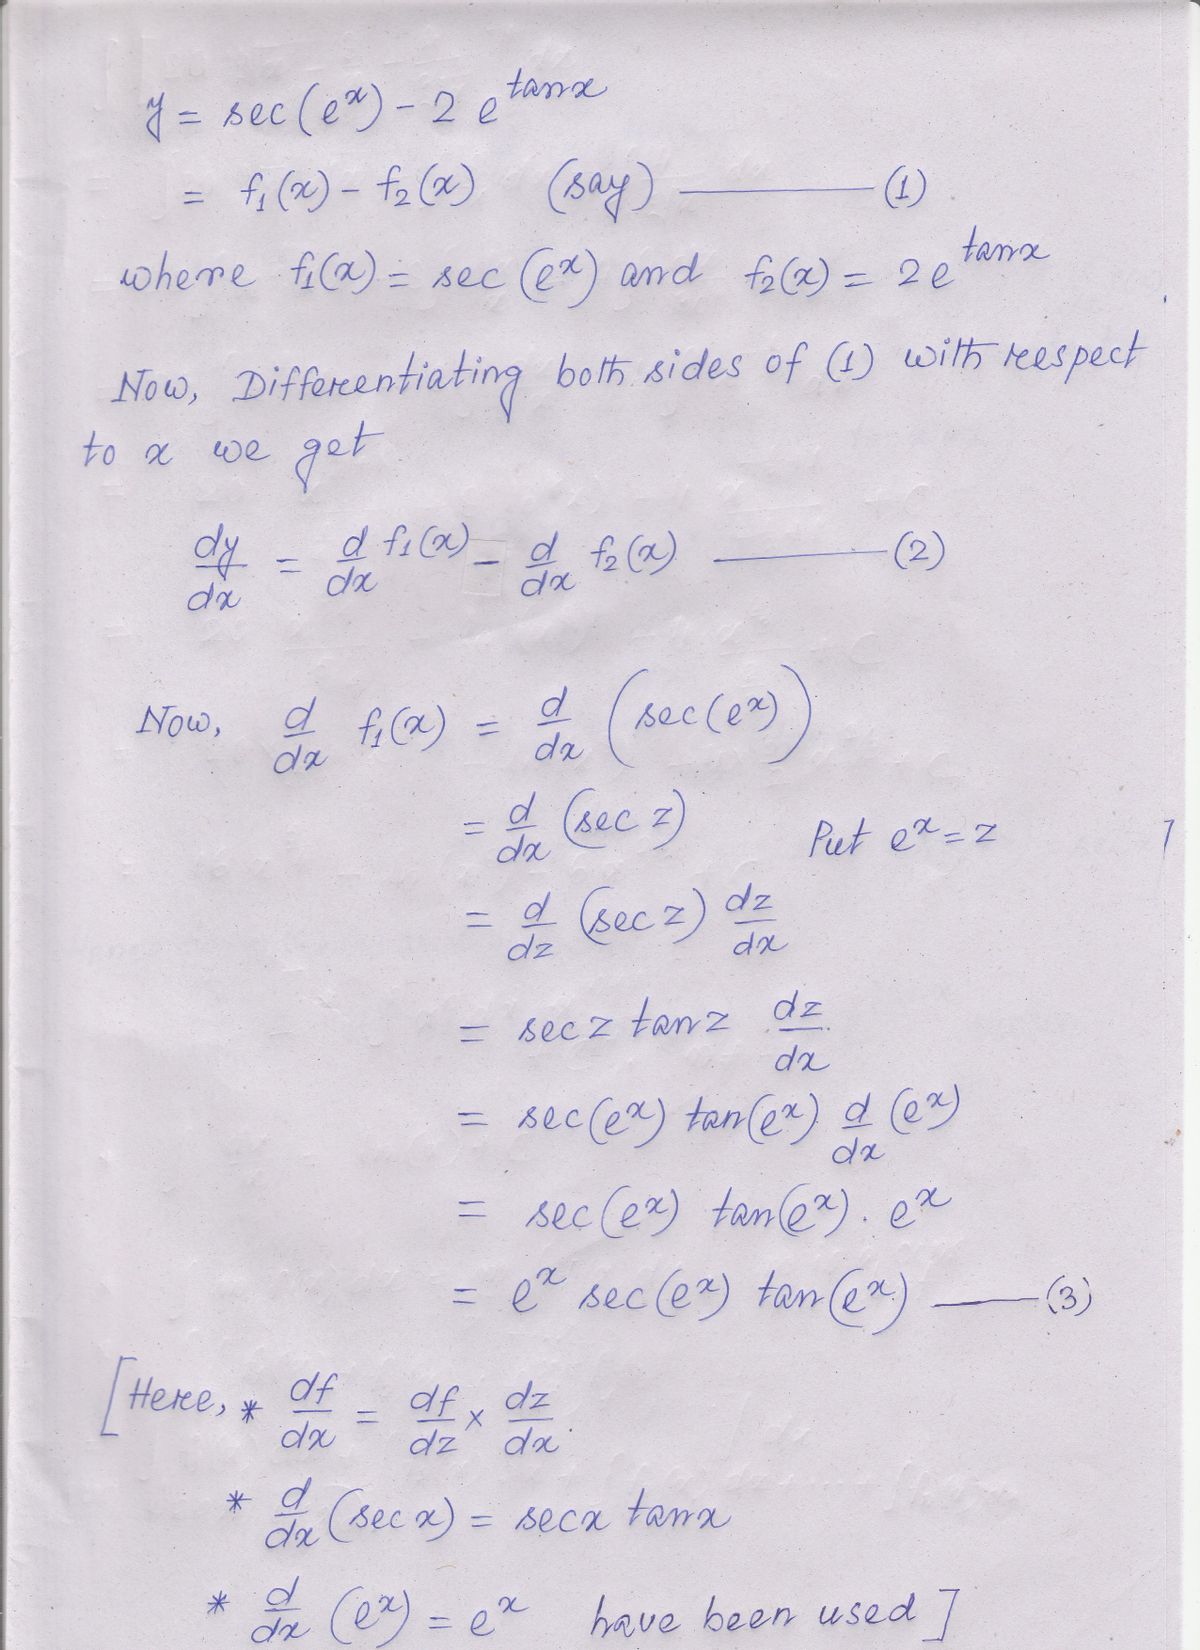 y = sec(e^x) - 2 e^tanx
= f₁(x) - f₂(x) (say) ——— (1)
where f₁(x) = sec(e^x) and f₂(x) = 2e^tanx
Now, Differentiating both sides of (1) with respect
to x we get
dy/dx = d/dx f₁(x) - d/dx f₂(x) ——— (2)
Now, d/dx f₁(x) = d/dx (sec(e^x))
= d/dx (sec z) Put e^x = z
= d/dz (sec z) dz/dx
= sec z tan z dz/dx
= sec(e^x) tan(e^x) d/dx (e^x)
= sec(e^x) tan(e^x) . e^x
= e^x sec(e^x) tan(e^x) ——— (3)
[Here, * df/dx = df/dz × dz/dx.
* d/dx (sec x) = secx tanx
* d/dx (e^x) = e^x have been used]